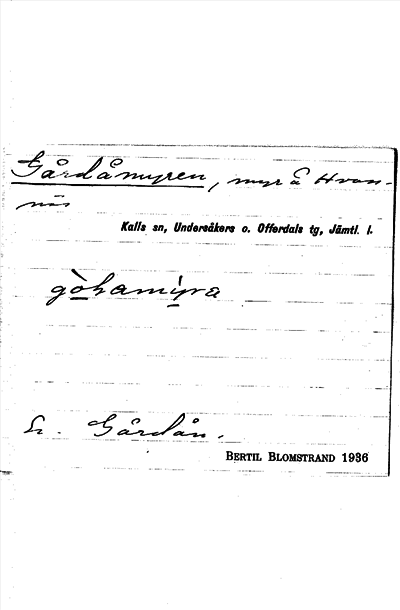 Gårdåmyren, myr å Hvan-
näs
Kalls sn, Undersåkers o. Offerdals tg, Jämtl. l.
gòhamỳra
Gårdån.
BERTIL BLOMSTRAND 1936